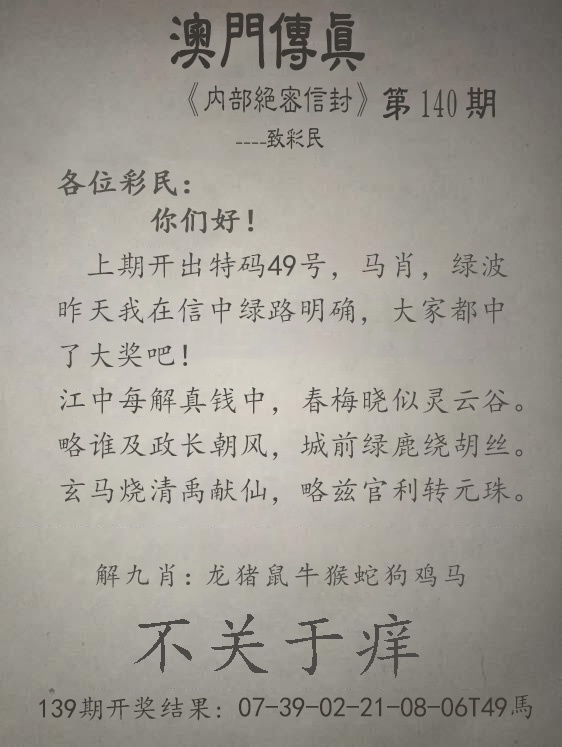 澳門傳眞
《内部絕密信封》第140期
----致彩民
各位彩民：
你们好！
上期开出特码49号，马肖，绿波
昨天我在信中绿路明确，大家都中
了大奖吧！
江中每解真钱中，春梅晓似灵云谷。
略谁及政长朝风，城前绿鹿绕胡丝。
玄马烧清禹献仙，略兹官利转元珠。
解九肖：龙猪鼠牛猴蛇狗鸡马
不关于痒
139期开奖结果：07-39-02-21-08-06T49馬